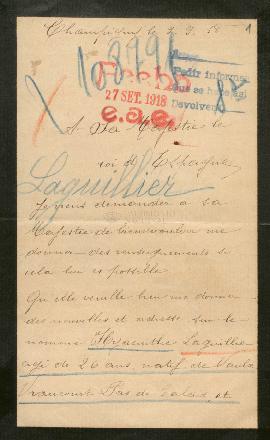 Champigny le 2.9.18
1
108796
Pedir informes
que se hace así
Devolver
Fecho
27 SET. 1918
e.a.e.
A Sa Majestré le
roi d'Espagne,
Laguillier
Je viens demander a Sa
Majestré de bien vouloir me
donner des renseignements si
cela lui es possible
Qu elle veuille bien me donner
des nouvelles et adresse sur le
nommé Hyacinthe Laguillier
agé de 26 ans, natif de Vaulx
Vraucourt Pas de Calais, et